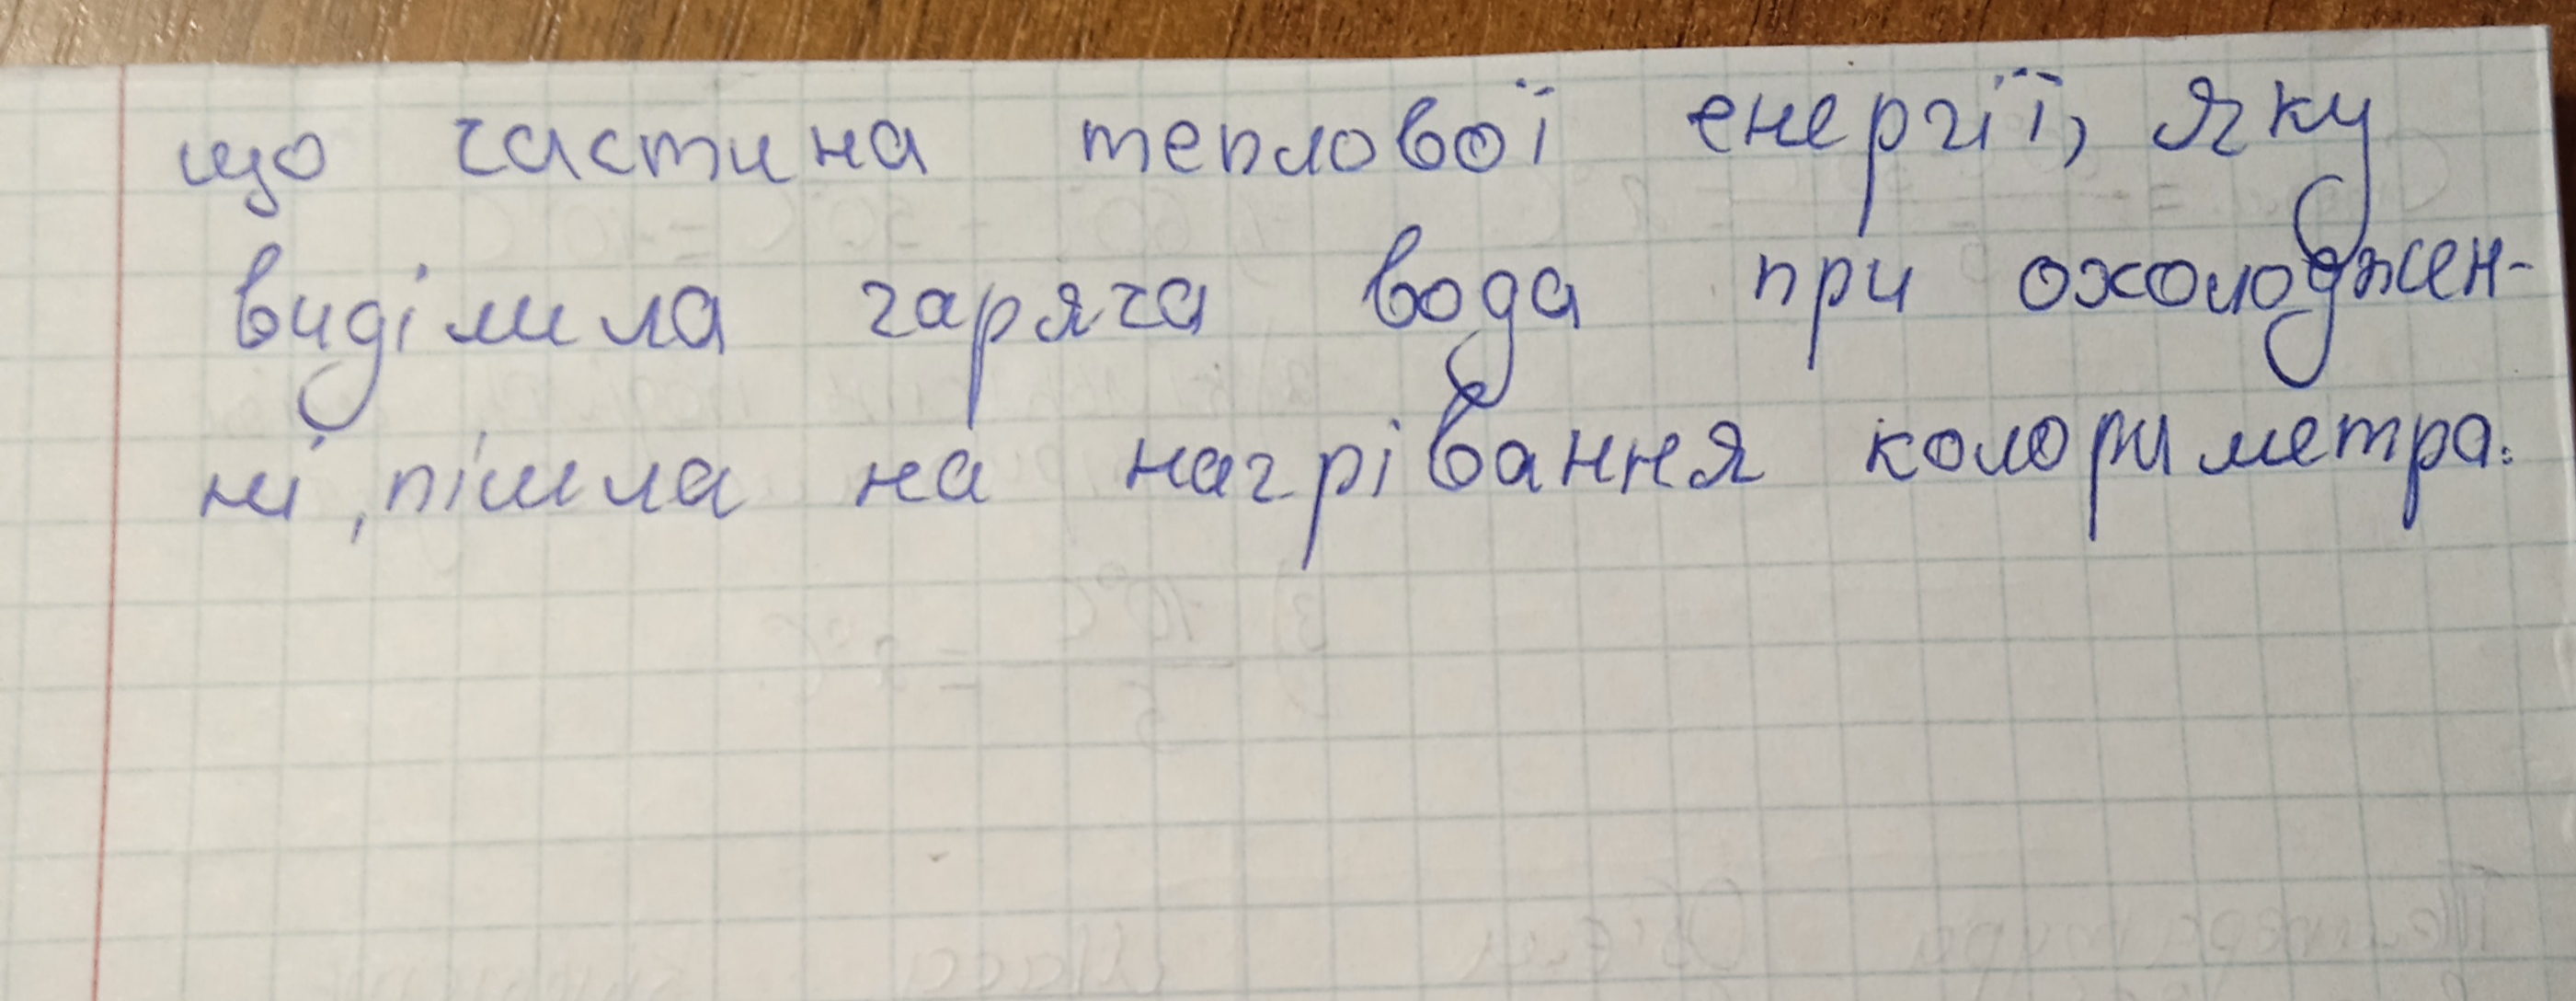 що частина теплової енергії, яку
виділила гаряча вода при охолоджен-
ні, пішла на нагрівання колориметра.